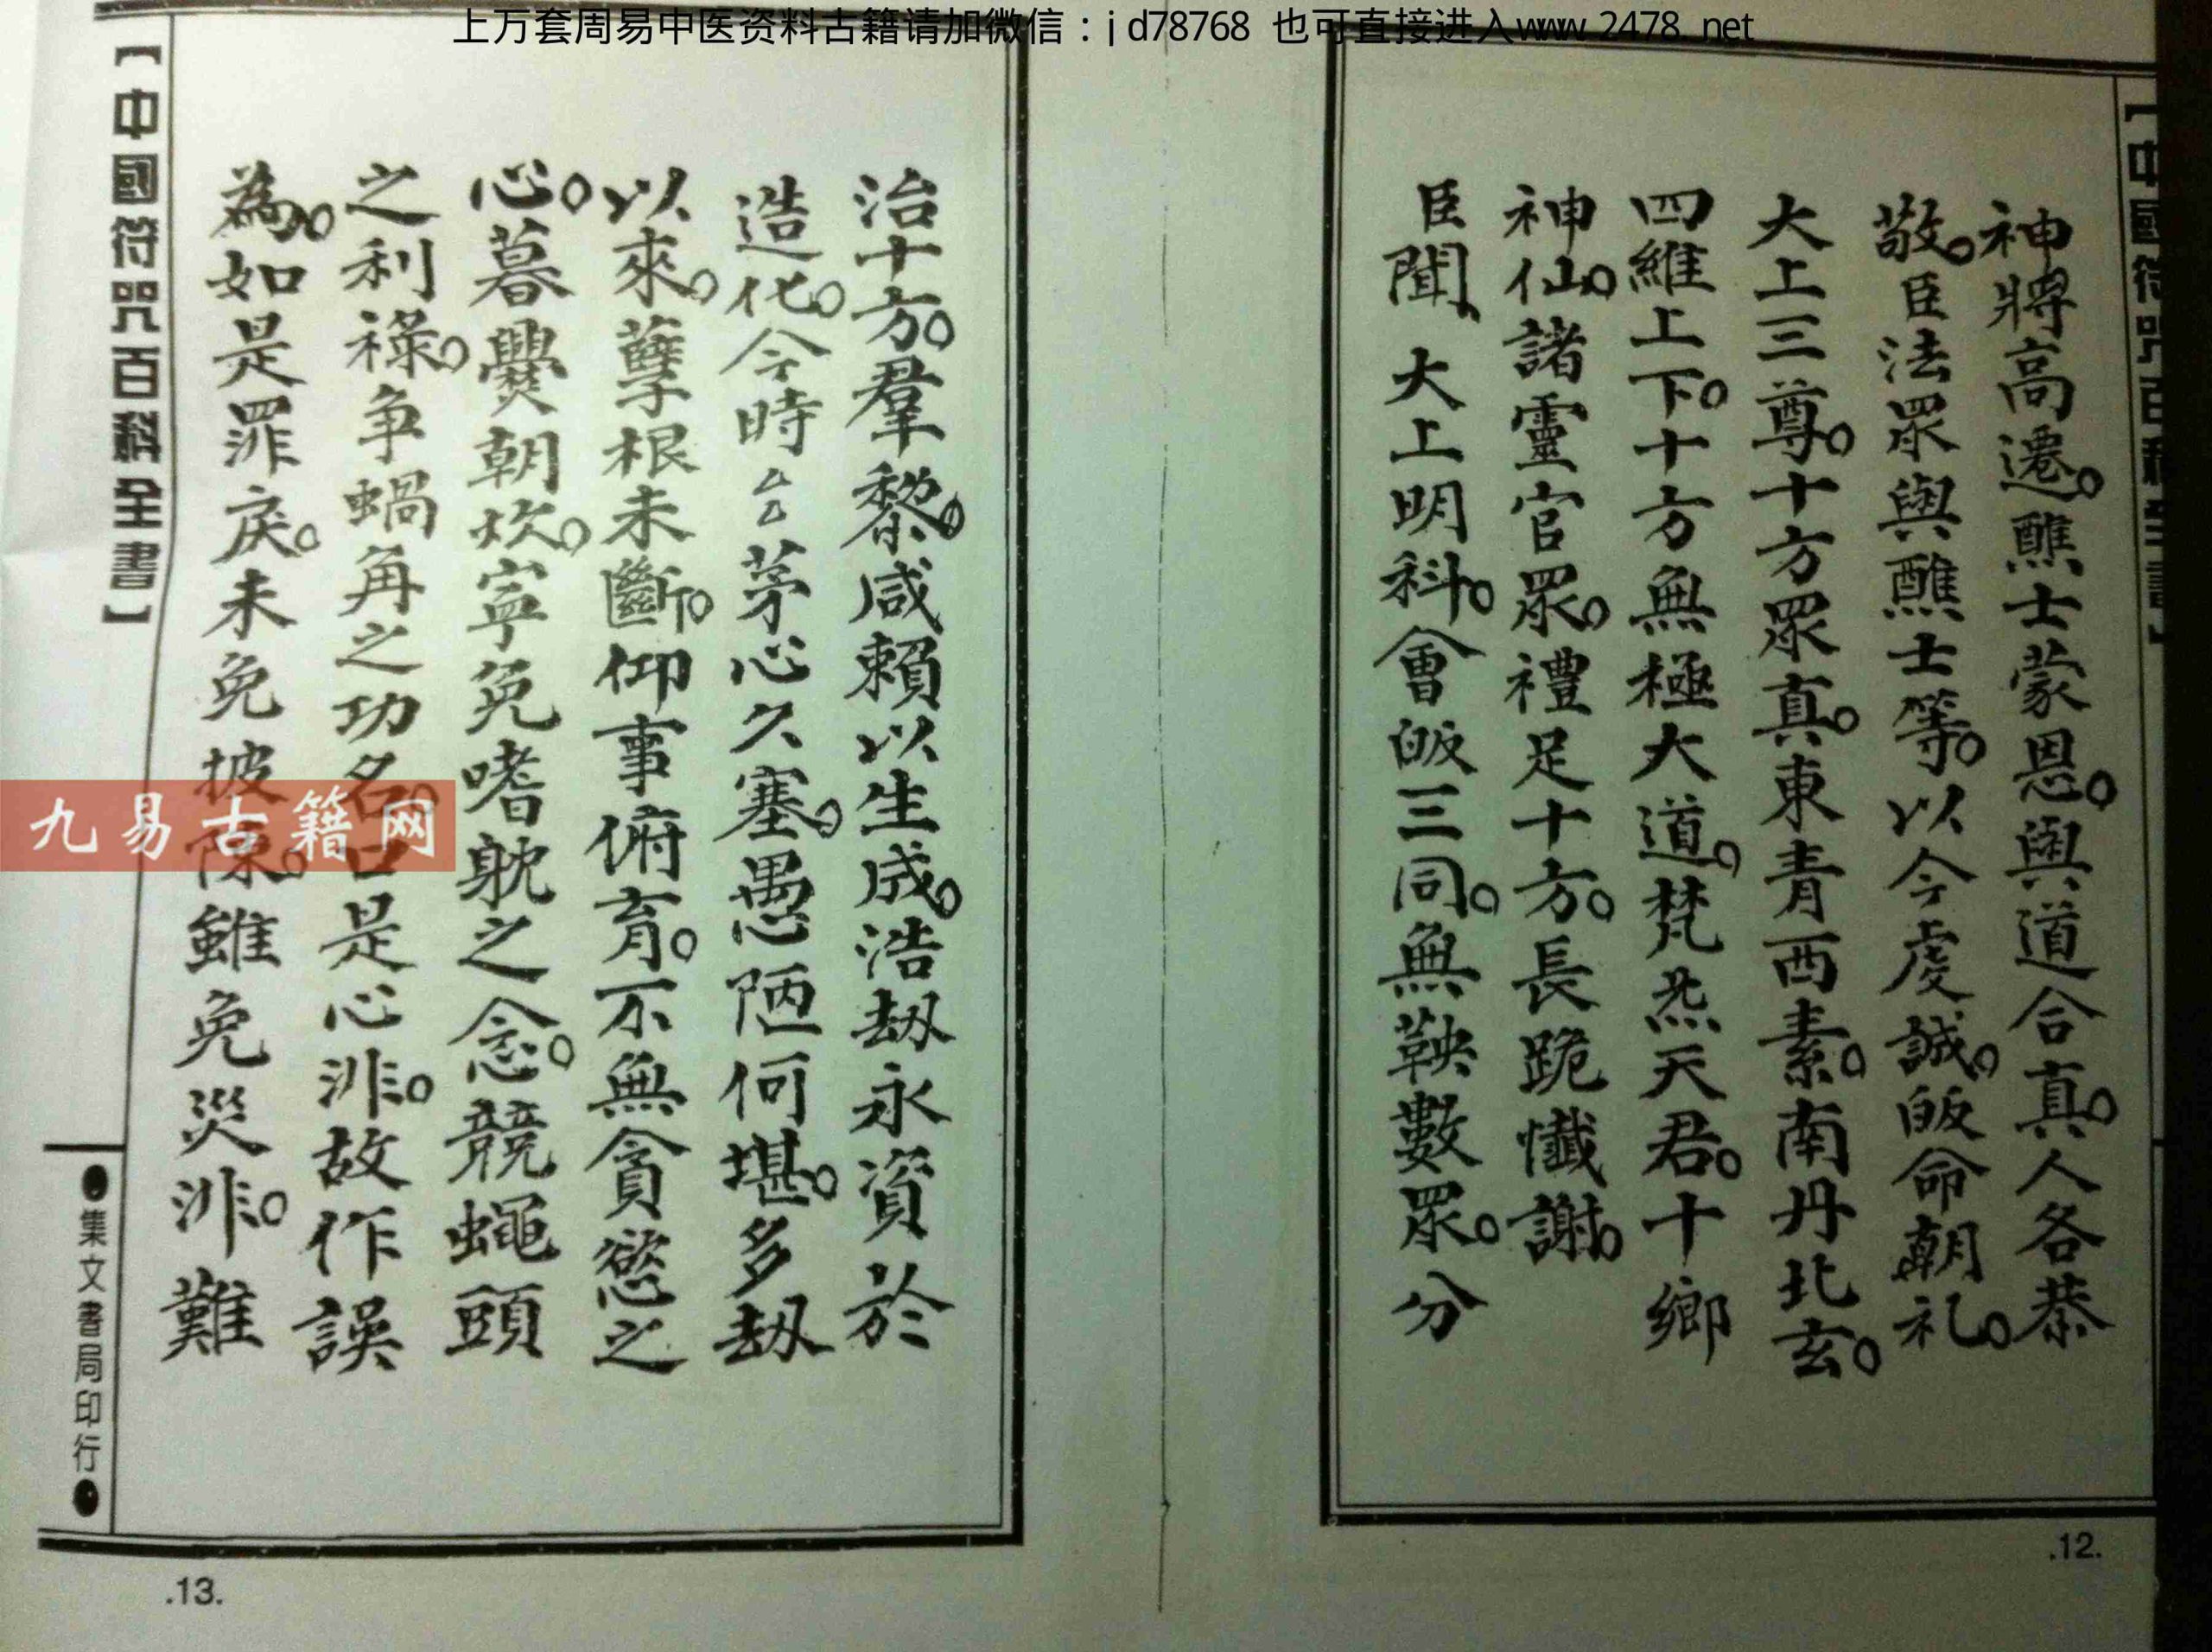 上万套周易中医资料古籍请加微信：jd78768 也可直接进入www.2478.net
神將高遷。醮士蒙恩。與道合真。人各恭
敬。臣法眾與醮士等。以今虔誠。皈命朝礼。
大上三尊。十方眾真。東青西素。南丹北玄。
四維上下。十方無極大道。梵炁天君。十鄉
神仙。諸靈官眾。禮足十方。長跪懺謝。
臣聞、大上明科。會皈三同。無鞅數眾。分
.12.
治十方。羣黎。咸賴以生成。浩劫永資於
造化。今時厶厶茅心久塞。愚陋何堪。多劫
以來。孽根未斷。仰事俯育。不無貪慾之
心。暮爨朝炊。寧免嗜躭之念。競蠅頭
之利祿。争蝸角之功名。口是心非。故作誤
為。如是罪戾。未免披陳。雖免災非。難
【中國符咒百科全書】
●集文書局印行●
.13.
九易古籍网